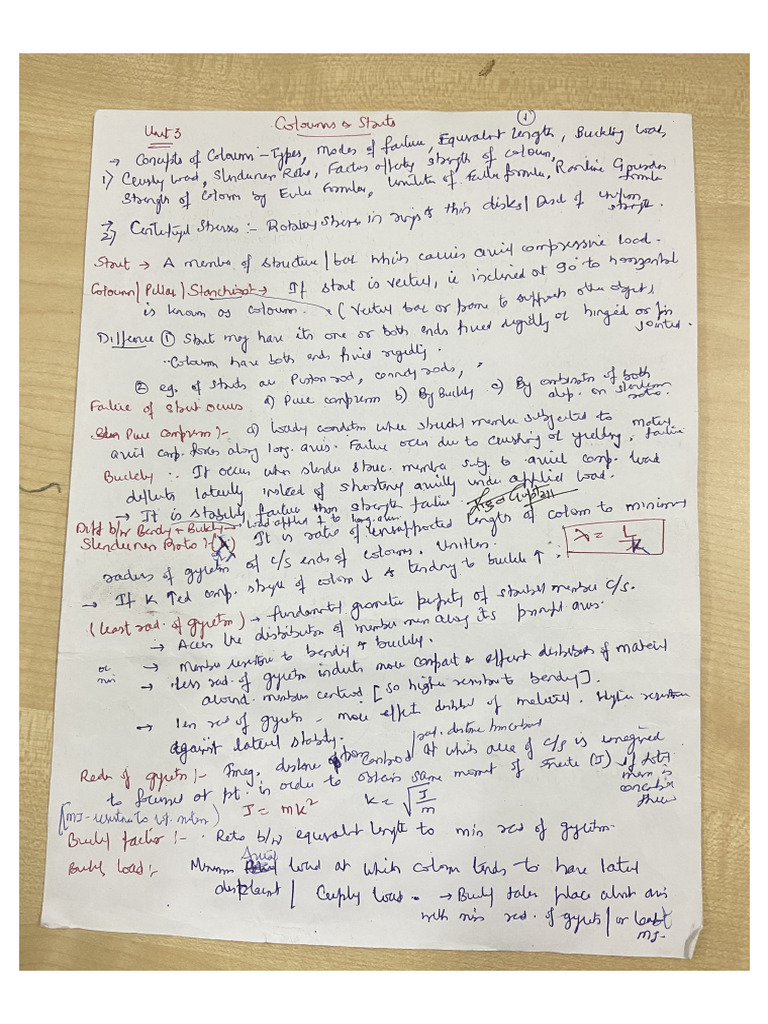 Unit 3 Columns & Struts 1
→ Concepts of Column - Types, Modes of failure, Equivalent length, Buckling load,
1) Crushing load, Slenderness Ratio, Factors affecting strength of column,
Strength of Column by Euler Formula, Limitation of Euler formula, Rankine Gordon formula
→ 2) Centrifugal Stresses :- Rotating Stresses in rings & thin disks / Disc of uniform strength.
Strut → A member of structure / bar which carries axial compressive load.
Column / Pillar / Stanchion → If strut is vertical, ie inclined at 90° to horizontal
is known as column. (Vertical bar or to support other object)
Difference ① Strut may have its one or both ends fixed rigidly or hinged or Pin jointed.
Column have both ends fixed rigidly.
② eg. of struts are Piston rod, connecting rods,
Failure of strut occurs a) Pure compression b) By Buckling c) By combination of both dep. on slenderness ratio.
Pure Compression :- a) loading condition where member subjected to
axial comp. forces along long. axis. Failure occur due to crushing or yielding,
Buckling :- It occurs when slender struc. member subj. to axial comp. load
deflects laterally instead of shortening axially under applied load.
→ It is stability failure than strength failure
Diff b/w Bending & Buckling → load applied ⊥ to long. axis
Slenderness Ratio :- (λ) It is ratio of unsupported length of column to minimum
radius of gyration of c/s ends of column. Unitless. λ = L/K
→ If K ↑ed comp. strength of column ↓ & tendency to buckle ↑.
(least rad. of gyration) → fundamental geometric property of member c/s.
→ the distribution of member along its principal axis.
→ Member resistance to bending & buckling.
or min → less rad. of gyration indicates more compact & efficient distribution of material
around members centroid [so higher resistance to bending].
→ less rad of gyration - more distrib of material. Higher resistance
against lateral stability.
Radius of gyration :- Imag. distance from centroid at which area of c/s is imagined
to focused at pt. in order to obtain same moment of Inertia (I) if total mass is there
[MI - resistance to rot. motion) I = mk² k = √I/m
Buckling factor :- Ratio b/w equivalent length to min rad of gyration.
Buckling load :- Minimum Axial load at which column tends to have lateral
displacement / load. → Buckling takes place about axis
with min rad. of gyration / or least MI.